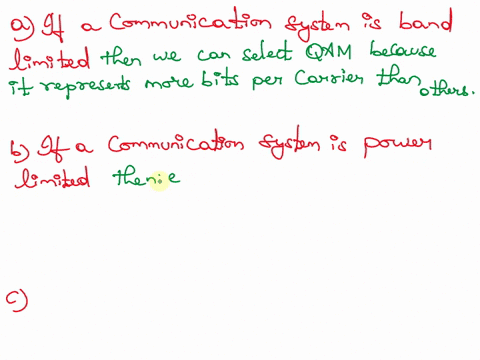 a) If a Communication system is band
limited then we can select QAM because
it represents more bits per carrier than
others.
b) If a Communication system is power
limited then
c)